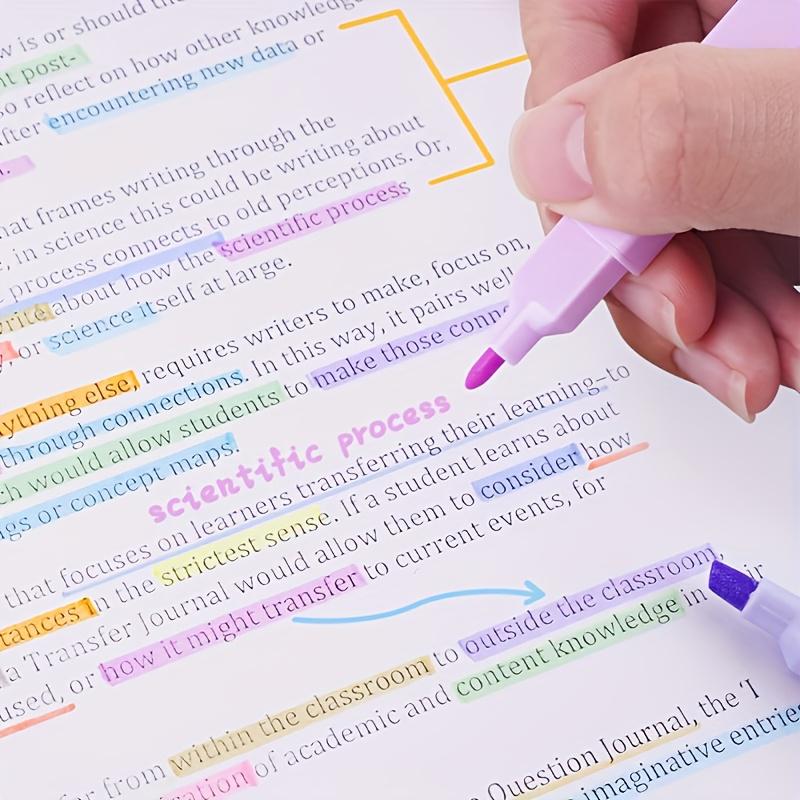 w is or should th
nt post-
so reflect on how other knowledge
fter encountering new data or
hat frames writing through the
e, in science this could be writing about
process connects to old perceptions. Or,
write about how the scientific process
y, or science itself at large.
requires writers to make, focus on,
ything else, through connections. In this way, it pairs well
ch would allow students to make those conne
ngs or concept maps.
scientific process
that focuses on learners transferring their learning–to
in the strictest sense. If a student learns about
tances
a Transfer Journal would allow them to consider how
used, or how it might transfer to current events, for
outside the classroom,
far from within the classroom to content knowledge in
of academic and
Question Journal, the ‘I
imaginative entries